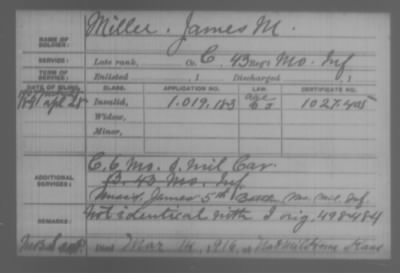 NAME OF SOLDIER: Miller, James M.
SERVICE: Late rank, Co. C, 43 Reg't Mo. Inf
TERM OF SERVICE: Enlisted , 1 Discharged , 1
DATE OF FILING. CLASS. APPLICATION NO. LAW. CERTIFICATE NO.
1891 Apl 28 Invalid, 1.019.183 1027.405
Widow,
Minor,
C. 6 Mo. S. Mil Cav.
ADDITIONAL SERVICES: B. 43 Mo. Inf
James 5th Mo. Mil. Inf
REMARKS: Not identical with I orig. 498484
Died Mar 14, 1916, at